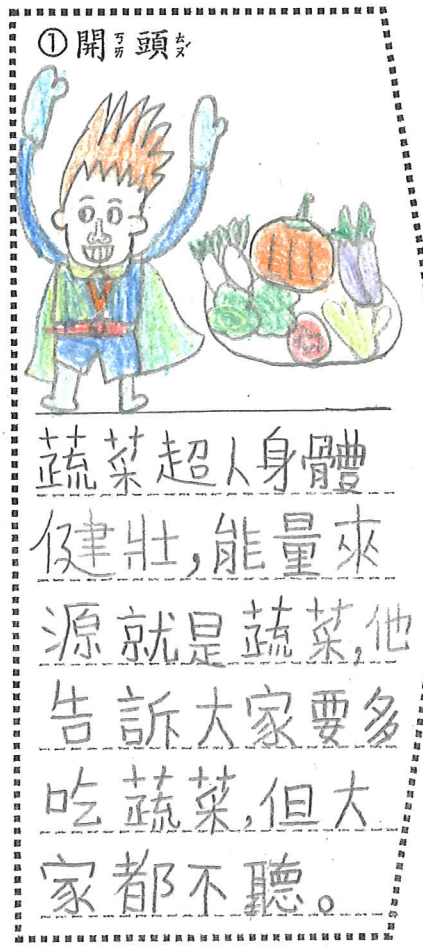 ①開ㄎㄞ頭ㄊㄡˊ
蔬菜超人身體
健壯,能量來
源就是蔬菜,他
告訴大家要多
吃蔬菜,但大
家都不聽。